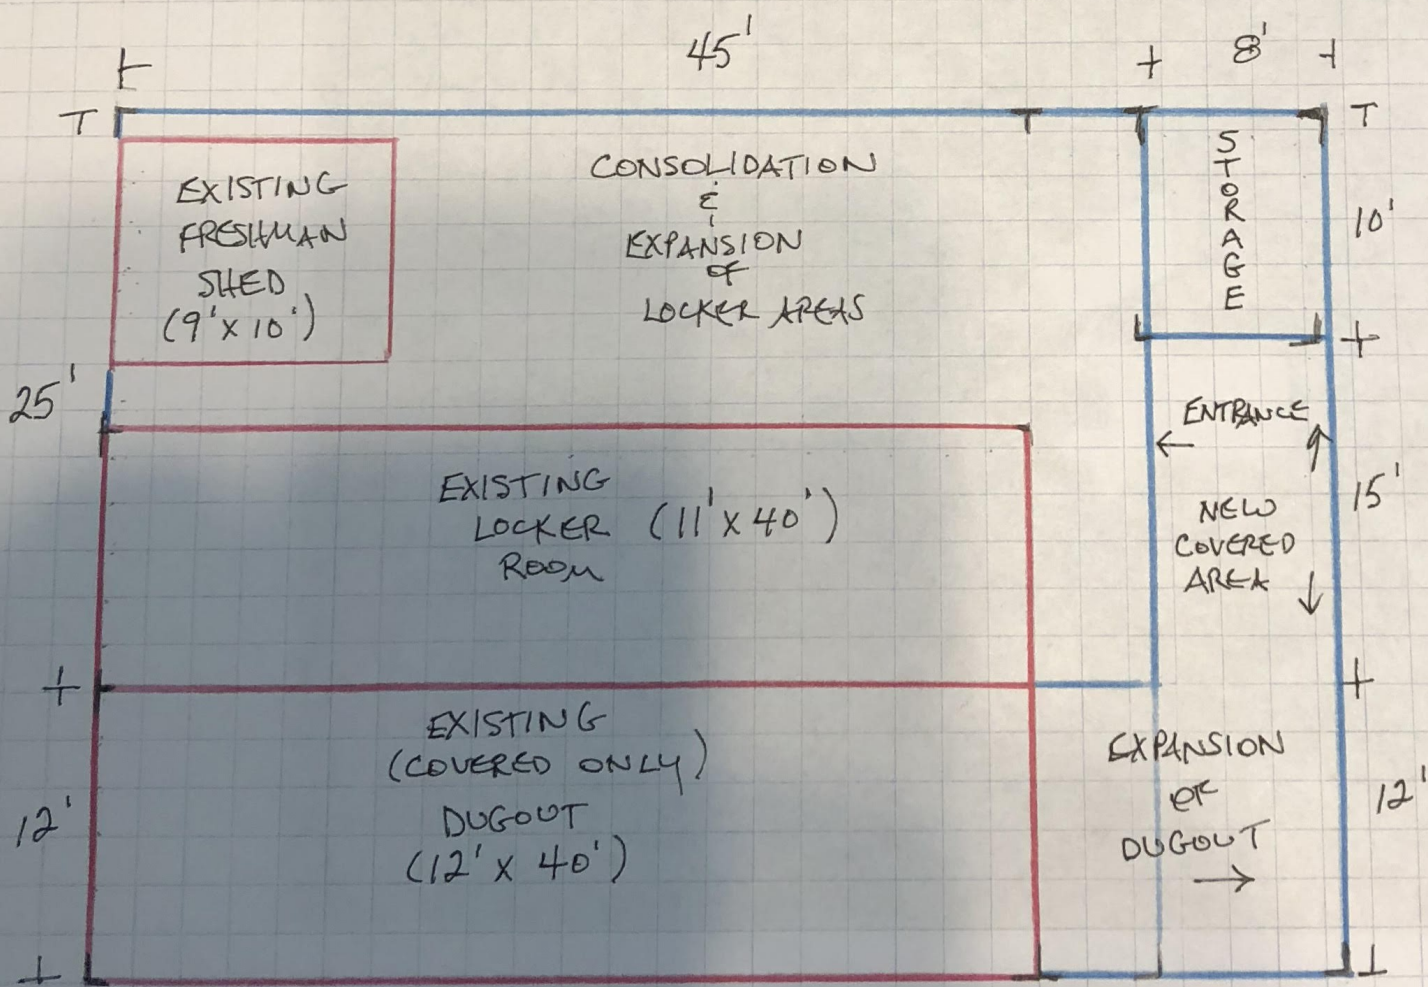 45'
8'
EXISTING
FRESHMAN
SHED
(9'x 10')
CONSOLIDATION
&
EXPANSION
OF
LOCKER AREAS
STORAGE
10'
25'
ENTRANCE
EXISTING
LOCKER (11'x 40')
ROOM
NEW
COVERED
AREA
15'
EXISTING
(COVERED ONLY)
DUGOUT
(12' x 40')
EXPANSION
OF
DUGOUT
12'
12'